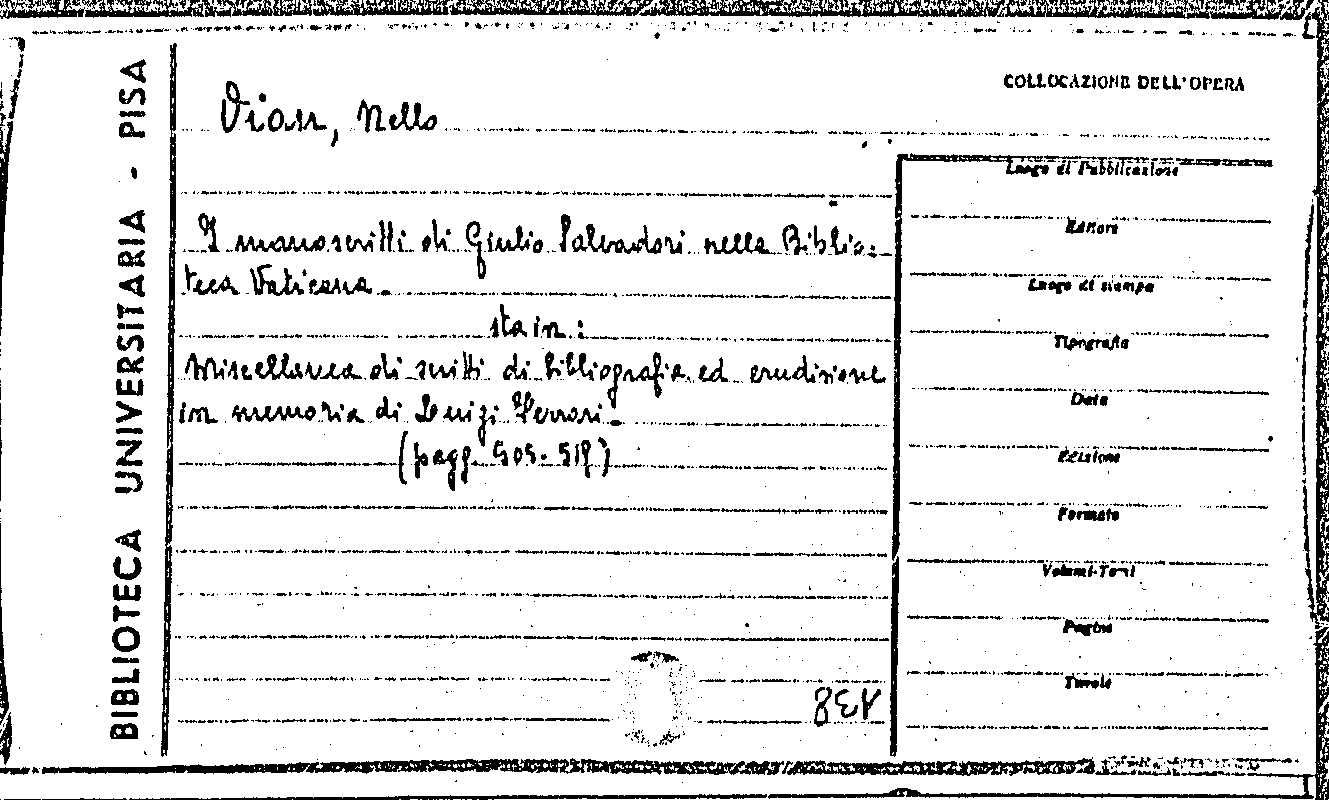 BIBLIOTECA UNIVERSITARIA - PISA
COLLOCAZIONE DELL'OPERA
Vian, Nello
I manoscritti di Giulio Salvadori nella Biblio=
teca Vaticana.
sta in:
Miscellanea di scritti di bibliografia ed erudizione
in memoria di Luigi Ferrari.
(pagg. 505-519)
Luogo di Pubblicazione
Editore
Luogo di stampa
Tipografia
Data
Edizione
Formato
Volumi-Tomi
Pagine
Tavole